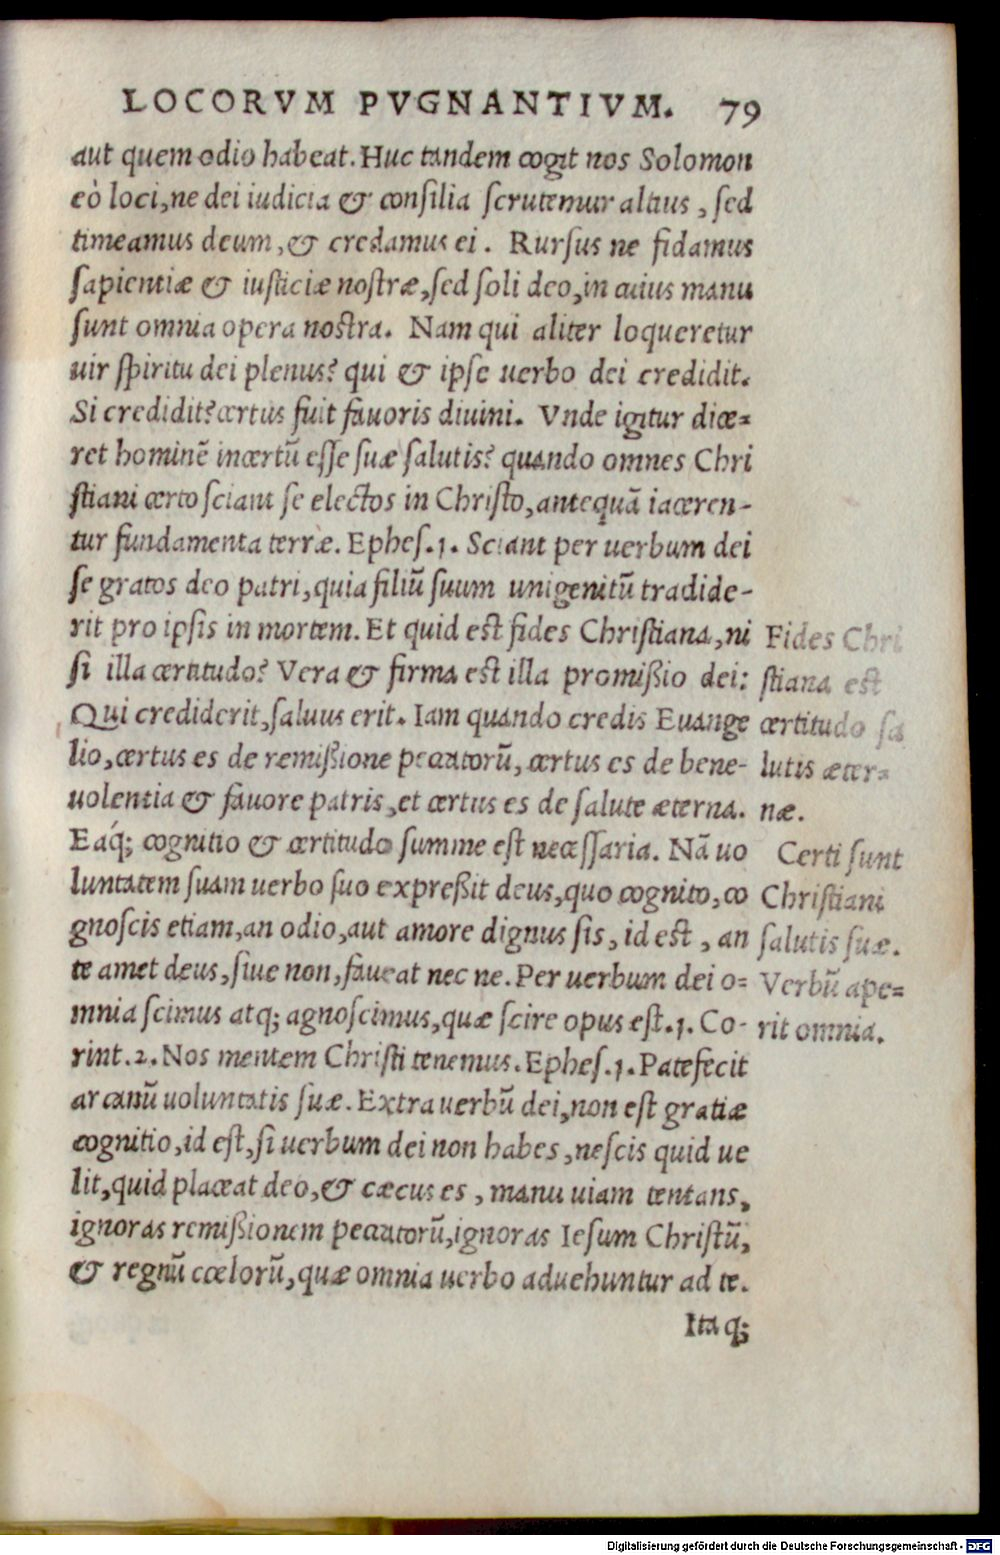 LOCORVM PVGNANTIVM. 79
aut quem odio habeat. Huc tandem cogit nos Solomon
eò loci, ne dei iudicia & consilia scrutemur altius, sed
timeamus deum, & credamus ei. Rursus ne fidamus
sapientiæ & iusticiæ nostræ, sed soli deo, in cuius manu
sunt omnia opera nostra. Nam qui aliter loqueretur
uir spiritu dei plenus? qui & ipse uerbo dei credidit.
Si credidit? certus fuit fauoris diuini. Vnde igitur dice=
ret hominẽ incertũ esse suæ salutis? quando omnes Chri
stiani certo sciant se electos in Christo, antequã iaceren-
tur fundamenta terræ. Ephes. 1. Sciant per uerbum dei
se gratos deo patri, quia filiũ suum unigenitũ tradide-
rit pro ipsis in mortem. Et quid est fides Christiana, ni
si illa certitudo? Vera & firma est illa promißio dei:
Qui crediderit, saluus erit. Iam quando credis Euange
lio, certus es de remißione peccatorũ, certus es de bene-
uolentia & fauore patris, et certus es de salute æterna.
Eaq́; cognitio & certitudo summe est necessaria. Nã uo
luntatem suam uerbo suo expreßit deus, quo cognito, co
gnoscis etiam, an odio, aut amore dignus sis, id est, an
te amet deus, siue non, faueat nec ne. Per uerbum dei o=
mnia scimus atq; agnoscimus, quæ scire opus est. 1. Co-
rint. 2. Nos mentem Christi tenemus. Ephes. 1. Patefecit
arcanũ uoluntatis suæ. Extra uerbũ dei, non est gratiæ
cognitio, id est, si uerbum dei non habes, nescis quid ue
lit, quid placeat deo, & cæcus es, manu uiam tentans,
ignoras remißionem peccatorũ, ignoras Iesum Christũ,
& regnũ cœlorũ, quæ omnia uerbo aduehuntur ad te.
Itaq;
Fides Chri
stiana est
certitudo sa
lutis æter=
næ.
Certi sunt
Christiani
salutis suæ.
Verbũ ape=
rit omnia.
Digitalisierung gefördert durch die Deutsche Forschungsgemeinschaft - DFG